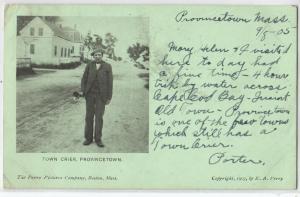 Provincetown Mass.
9/5-05
Mary Helen & I visited
here to day had
a fine time - 4 hour
trip by water across
Cape Cod Bay -
Old Town - Provincetown
is one of the few towns
which still has a
Town Crier.
Porter.
TOWN CRIER, PROVINCETOWN.
The Perry Pictures Company, Boston, Mass.
Copyright, 1905, by E. A. Perry